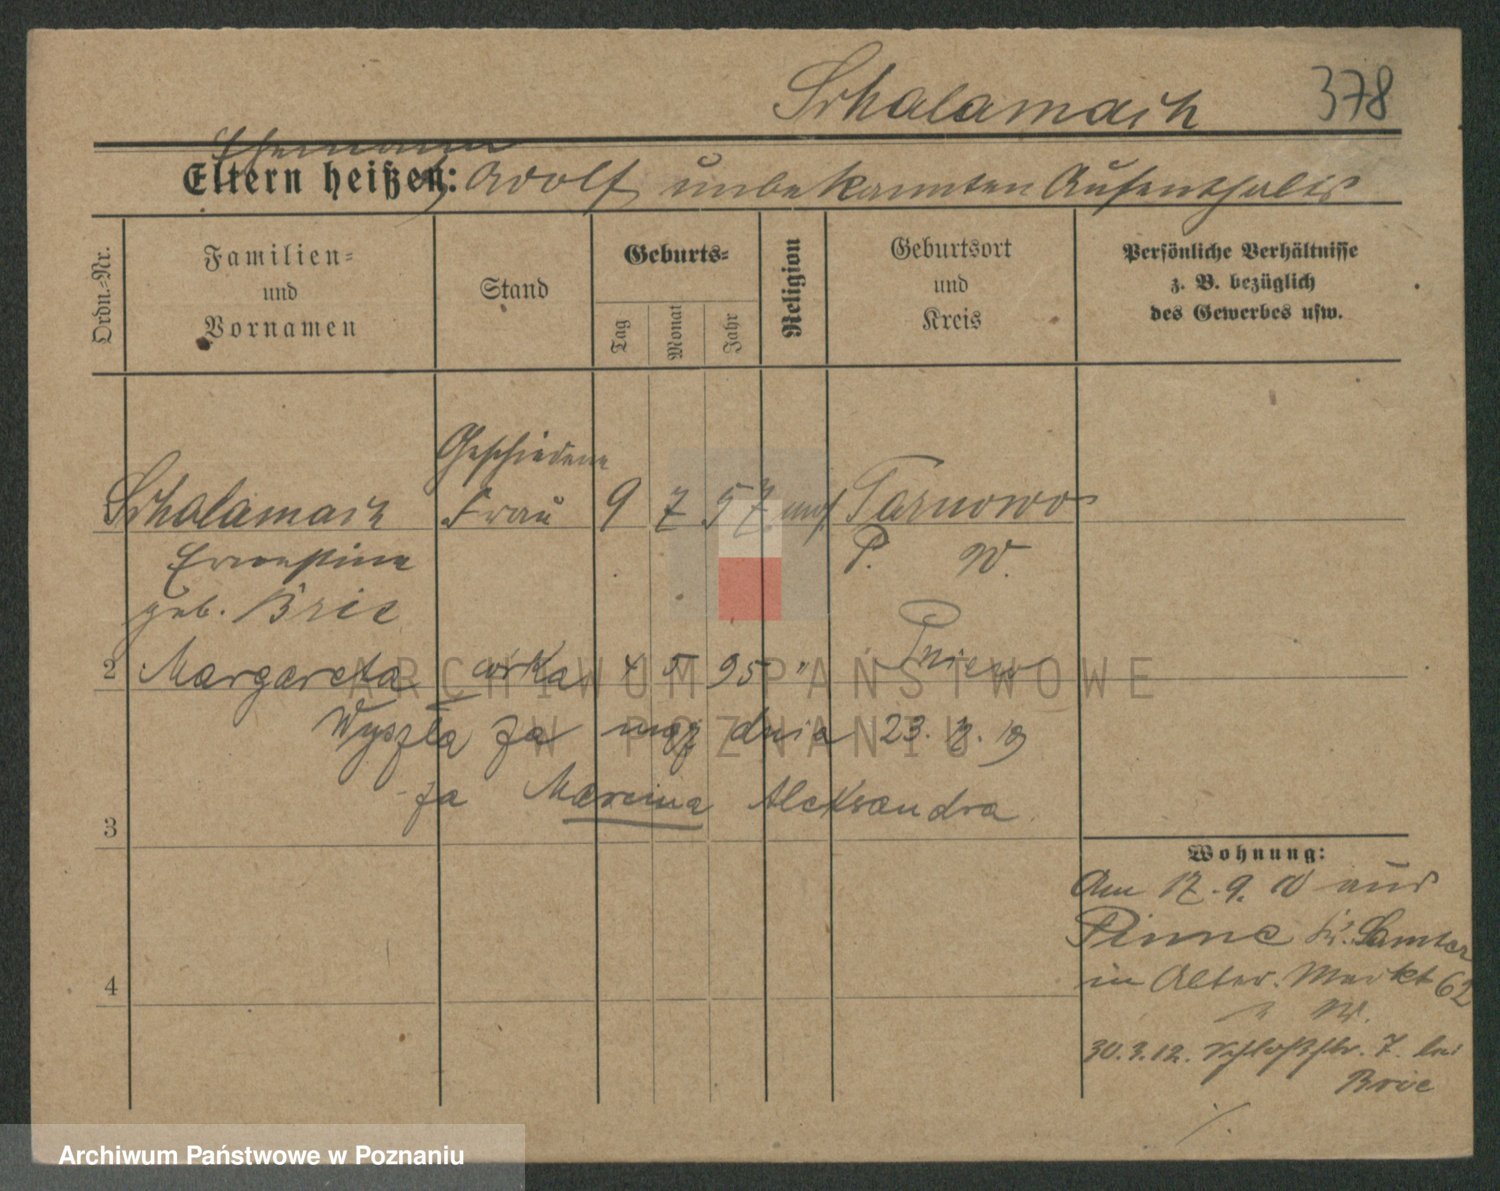 Schalamach 378
Ehemann
Eltern heißen: Adolf unbekannten Aufenthalts
Ordn.-Nr.
Familien-
und
Vornamen
Stand
Geburts-
Tag
Monat
Jahr
Religion
Geburtsort
und
Kreis
Persönliche Verhältnisse
z. B. bezüglich
des Gewerbes usw.
Geschiedene
Schalamach Frau 9 7 57 mos Tarnowo
Ernestine P. W.
geb. Brie
2 Margareta córka 4 5 95 " Pniewy
Wyszła za mąż dnia 23. 3. 19
za Marcina Aleksandra
3
4
Wohnung:
Am 17.9.10 aus
Pinne Kr. Samter
in Alter. Markt 62
30.3.12. Schloßstr. 7. bei
Brie
ARCHIWUM PAŃSTWOWE
W POZNANIU
Archiwum Państwowe w Poznaniu